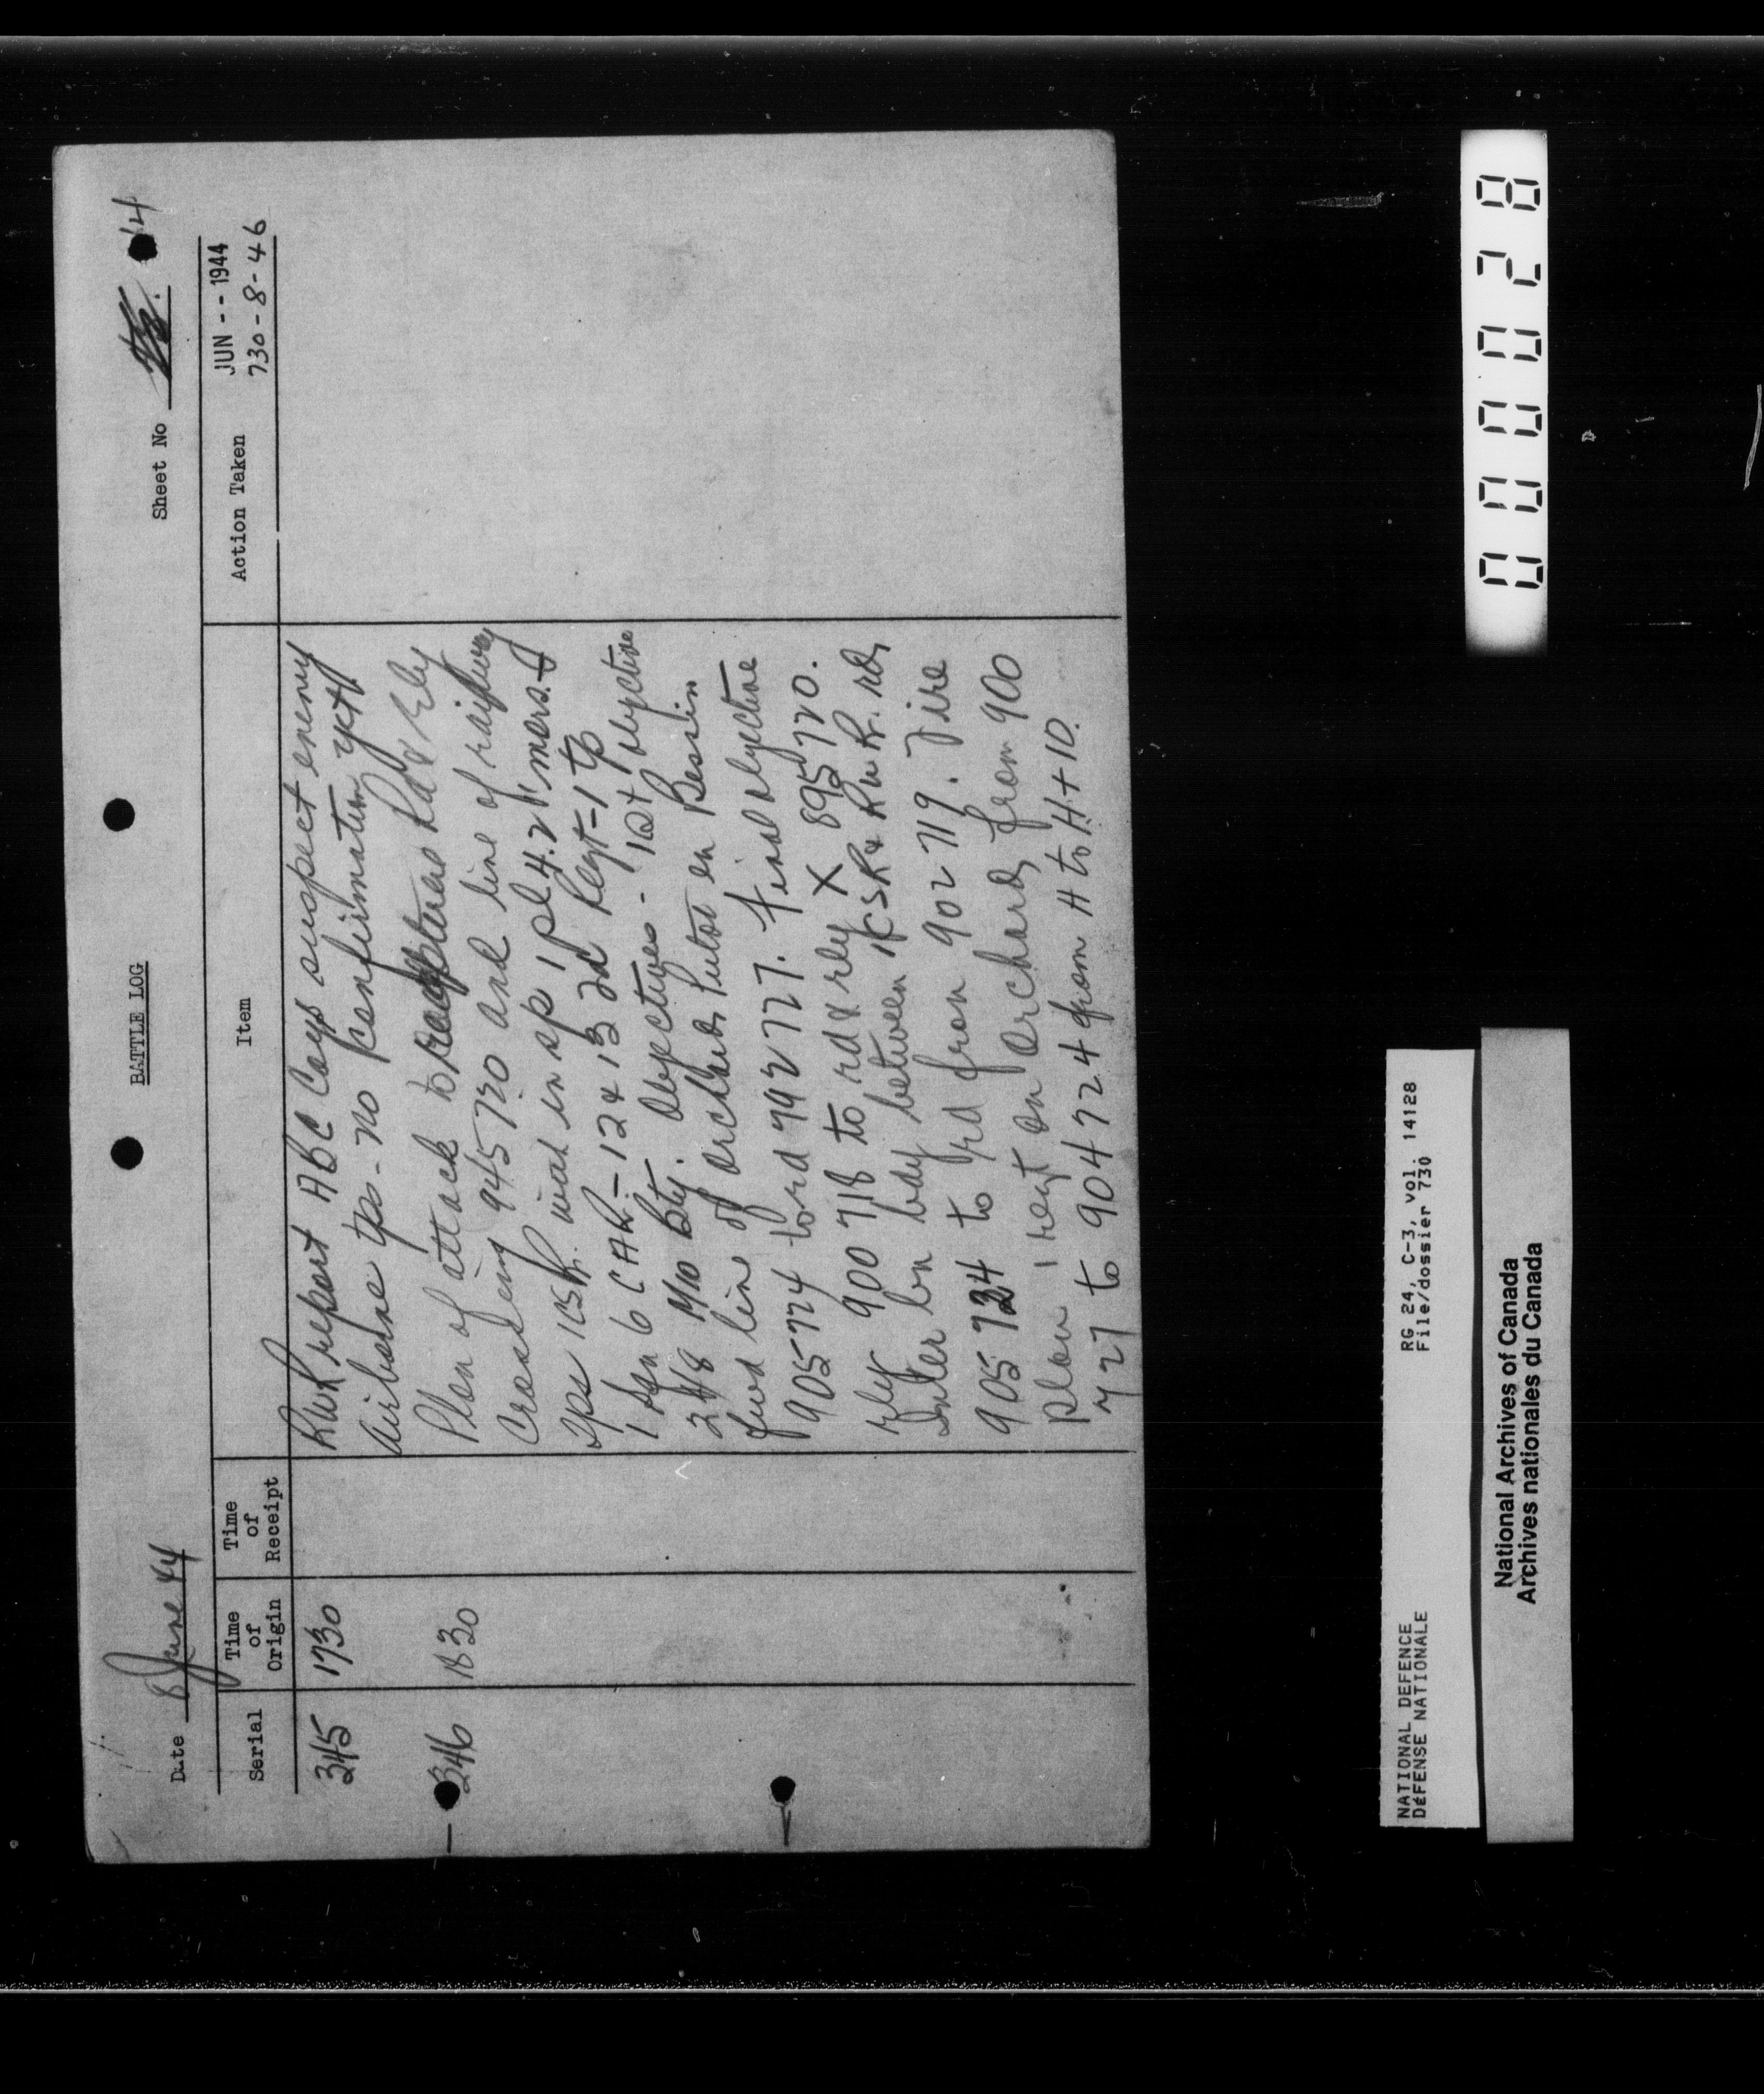 BATTLE LOG
Date 8 June 44
Sheet No 14
Serial
Time of Origin
Time of Receipt
Item
Action Taken
JUN -- 1944
730-8-46
345 1730 RWR report ABC Coys suspect enemy
Airborne tps - no confirmation yet
346 1830 Plan of attack to recapture Rd & Rly
Crossing 945720 and line of railway
Tps 1CSR. was in sp 1 pl 4.2" mors.
1 Sqn 6 CAR - 12 & 13 Fd Regt - 1 tp
248 M10 Bty. Objectives - 1st objective
fwd line of orchards Putot en Bessin
905724 to rd 992727. Final objective
rly 900718 to rd & rly X 895720.
Inter bn bdy between 1CSR & RWR. rd
905724 to rd from 902719. Fire
plan 1 regt on orchards from 900
727 to 904724 from H to H+10.
000028
NATIONAL DEFENCE
DÉFENSE NATIONALE
RG 24, C-3, vol. 14128
File/dossier 730
National Archives of Canada
Archives nationales du Canada